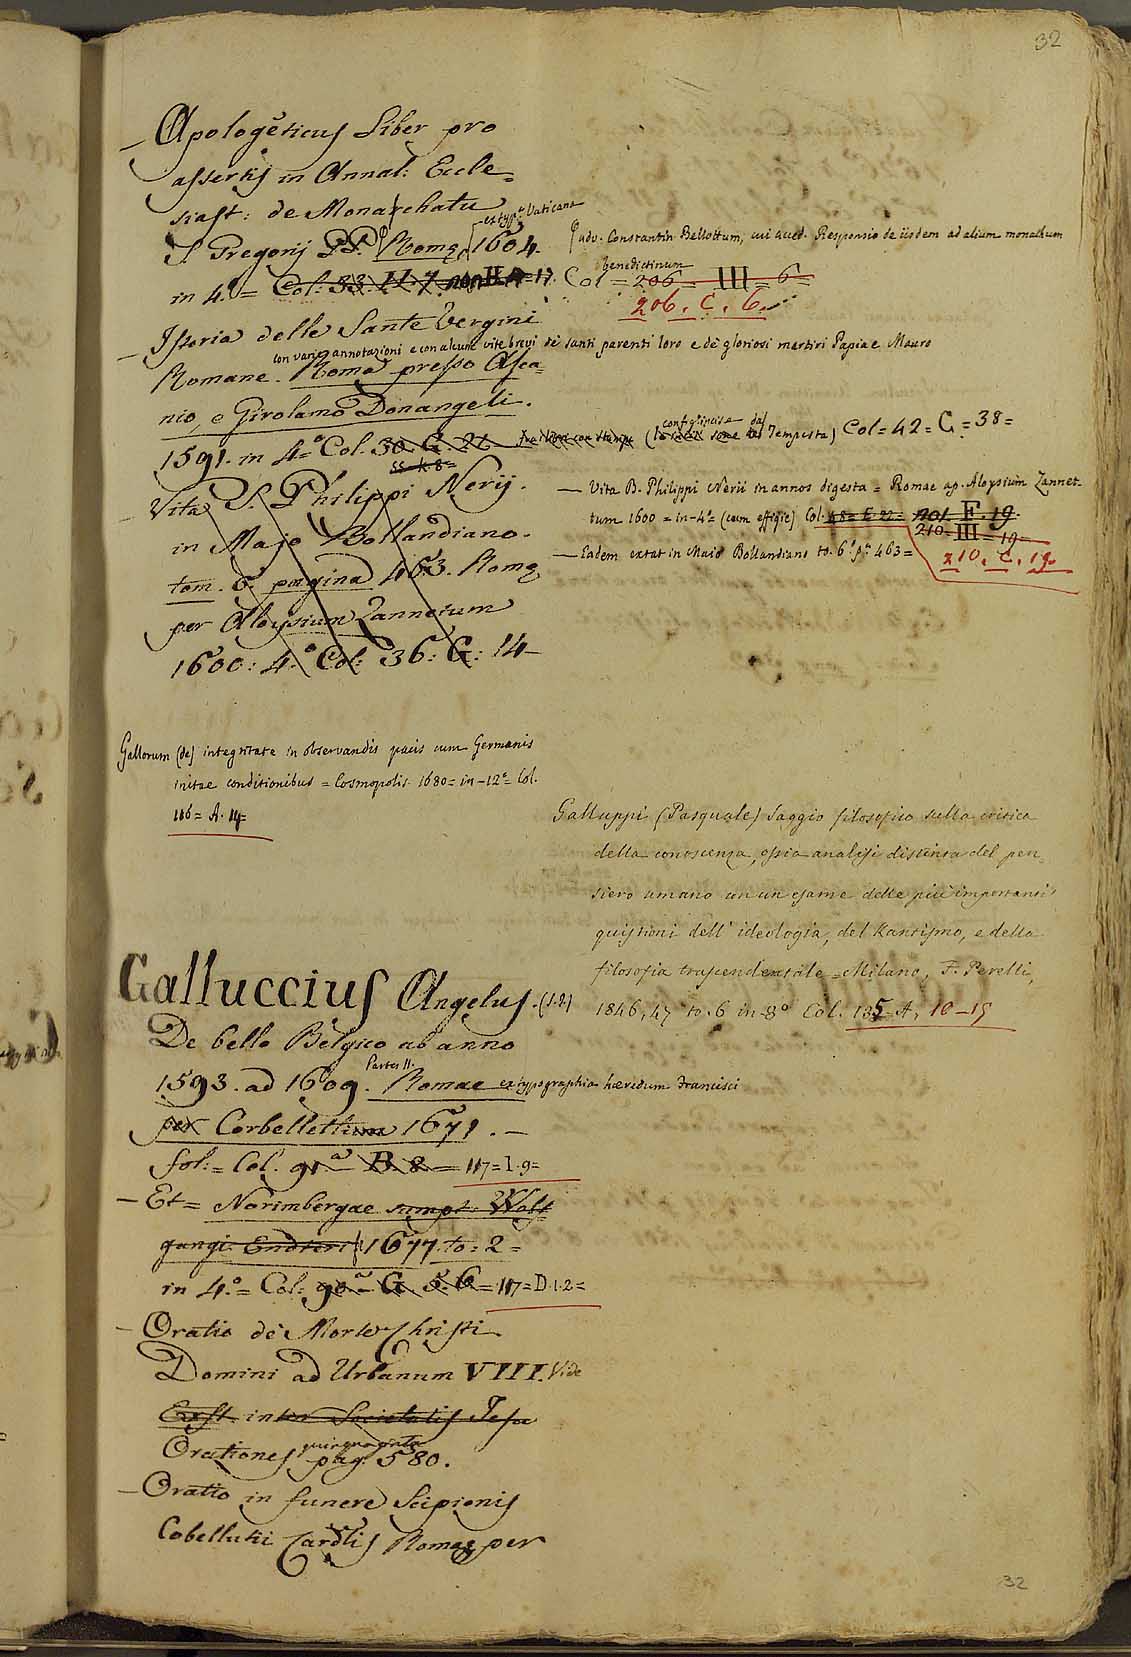 32
— Apologéticus Liber pro
assertis in Annal: Eccle=
siast: de Monachatu
S. Gregorij PP. Romæ 1604.
ex typ.ª Vaticana
adv. Constantin. Bellottum, cui acced. Responsio de iisdem ad alium monachum
benedictinum
in 4.º = Col: 33. H. 7. = 17. Col = 206 = III = 6 =
206. C. 6.
— Istoria delle Sante Vergini
con varie annotazioni e con alcune vite brevi de' santi parenti loro e de' gloriosi martiri Papia e Mauro
Romane. Roma presso Asca=
nio, e Girolamo Donangeli.
1591. in 4=º Col. 30. G. 22 Tempesta) Col = 42 = G = 38 =
55 k 8 =
— Vita S. Philippi Nerij.
in Majo Bollandiano.
tom. 6. pagina 463. Romæ
per Aloysium Zannetum
1600: 4.º Col: 36: G: 14 —
— Vita B. Philippi Nerii in annos digesta = Romae ap. Aloysium Zannet-
tum 1600 = in-4º = (cum effigie) Col. 48 = E 22 = 201. F. 19
210. III = 19 =
— Eadem extat in Maio Bollandiano to. 6º pº 463 =
210. C. 19.
Gallorum (de) integritate in observandis pacis cum Germanis
initae conditionibus = Cosmopolis 1680 = in-12º = Col.
116 = A. 14 =
Galluppi (Pasquale) Saggio filosofico sulla critica
della conoscenza, ossia analisi distinta del pen-
siero umano con un esame delle più importanti
quistioni dell' ideologia, del Kantismo, e della
filosofia trascendentale = Milano, F. Perelli,
1846, 47 to. 6 in-8º Col. 135 A, 10-15
Galluccius Angelus. (S.J.)
De bello Belgico ab anno
1593. ad 1609. Partes II. Romae ex typographia hæredum Francisci
per Corbelletium 1671. —
fol: = Col. 91.ª — B. 8 = 117 = I. 9 =
— Et = Norimbergae sumpt. Wolf
gangi Endteri 1677. to = 2 =
in 4.º = Col: 90ª — G. 5. 6 = 117 = D. 1. 2 =
— Oratio de Morte Christi
Domini ad Urbanum VIII. Vide
Exst. inter Societatis Jesu
Orationes quinquaginta pag. 580.
— Oratio in funere Scipionis
Cobellutii Cardlis Romæ per
32